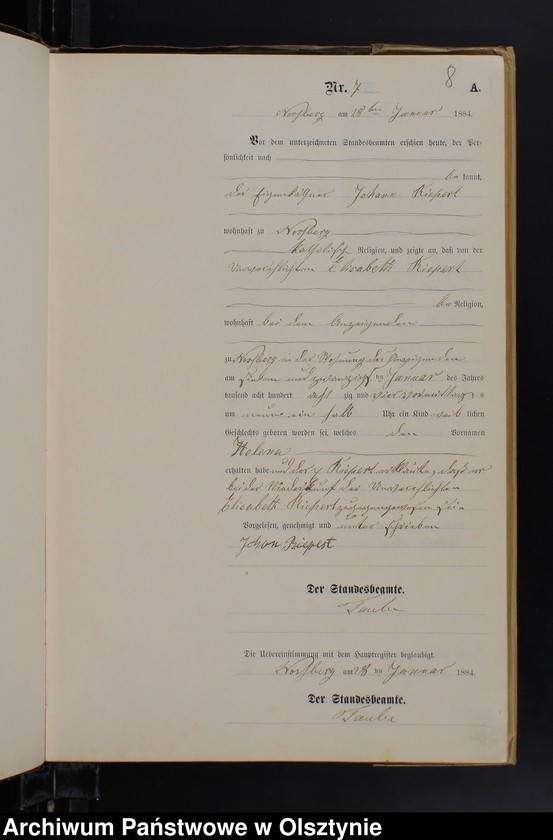 8
Nr. 7 A.
Noßberg am 28ten Januar 1884.
Vor dem unterzeichneten Standesbeamten erschien heute, der Per-
sönlichkeit nach
be kannt,
der Eigenkäthner Johann Riepert
wohnhaft zu Noßberg
katholischer Religion, und zeigte an, daß von der
Unverehlichten Elisabeth Riepert
Religion,
wohnhaft bei dem Anzeigenden
zu Noßberg in der Wohnung des Anzeigenden
am sieben und zwanzigsten Januar des Jahres
tausend acht hundert acht zig und vier Vormittags
um neun ein halb Uhr ein Kind weib lichen
Geschlechts geboren worden sei, welches den Vornamen
Helena
erhalten habe und der Riepert erklärte, daß er
bei der Niederkunft der Unverehlichten
Elisabeth Riepert zugegen gewesen sei
Vorgelesen, genehmigt und unter schrieben
Johan Riepert
Der Standesbeamte.
Taube
Die Uebereinstimmung mit dem Hauptregister beglaubigt.
Noßberg am 28 ten Januar 1884.
Der Standesbeamte.
Taube
Archiwum Państwowe w Olsztynie